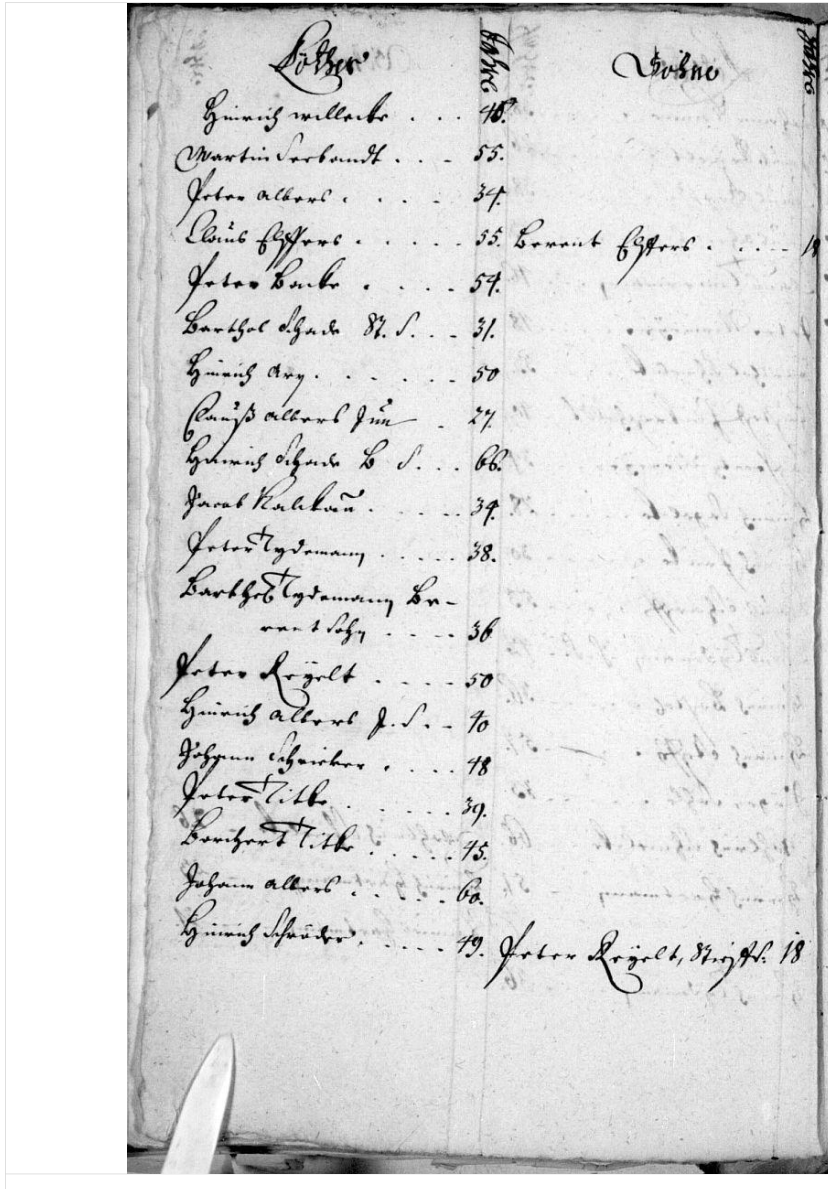 Köther Jahre Söhne Jahre
Hinrich Willecke . . . 48.
Martin Seebandt . . . 55.
Peter Albers . . . . 34.
Claus Elffers . . . . . 55. Berent Elffers . . . . . 18
Peter Backe . . . . . 54.
Barthol Schade St. S. . . 31.
Hinrich Ary . . . . . . 50
Clauß Albers Jun . 27.
Hinrich Schade B S. . . 66.
Jacob Kalckau . . . . . 34.
Peter Tydemann . . . . . 38.
Barthol Tydemann Be-
rent Sohn . . . . 36
Peter Reyelt . . . . 50
Hinrich Albers J. S. . . 40
Johann Schrieker . . . . 48
Peter Titke . . . . . . 39.
Borchert Titke . . . . . 45.
Johann Albers . . . . . 60.
Hinrich Schröder . . . . . 49. Peter Reyelt, Stiefs. 18